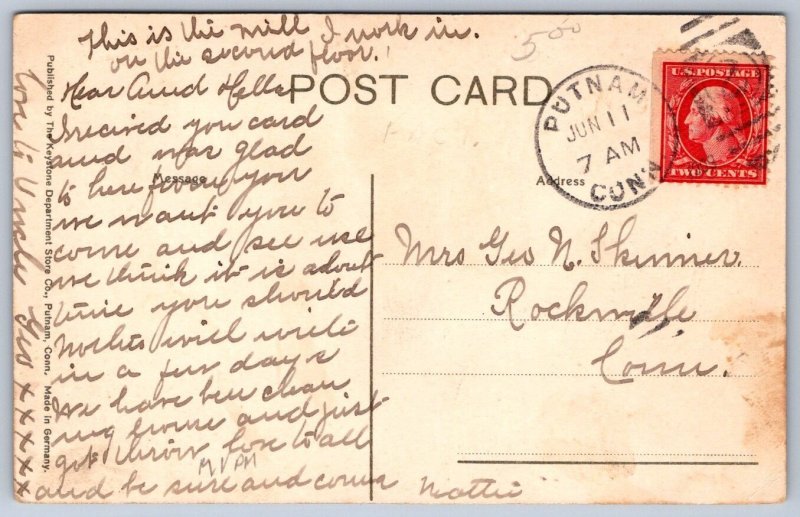 This is the mill I work in.
on the second floor.
POST CARD
Dear Aund Hells
I recived you card
and was glad
to here from you
we want you to
come and see use
we think it is about
time you should
Mothes will write
in a few days
We have ben clean
ing house and just
got throw love to all
and be sure and come Mattie
Uncle Geo x x x x x
Message
Address
Published by The Keystone Department Store Co., Putnam, Conn. Made in Germany.
500
PUTNAM
JUN 11
7 AM
CONN
U.S. POSTAGE
TWO CENTS
Mrs Geo N. Skinner.
Rockville
Conn.